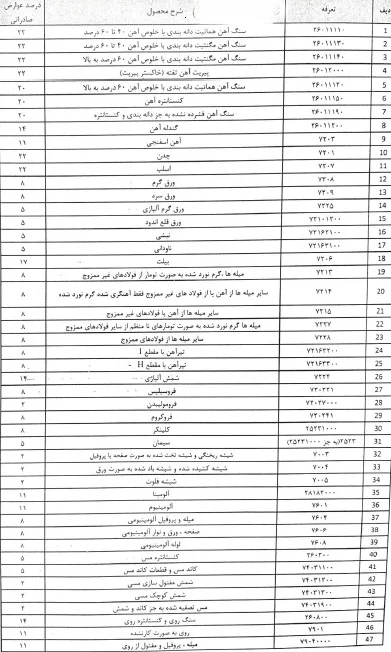 ردیف تعرفه شرح محصول درصد عوارض صادراتی
1 ۲۶۰۱۱۱۱۰ سنگ آهن هماتیت دانه بندی با خلوص آهن ۴۰ تا ۶۰ درصد ۲۲
2 ۲۶۰۱۱۱۳۰ سنگ آهن مگنتیت دانه بندی با خلوص آهن ۴۰ تا ۶۰ درصد ۲۲
3 ۲۶۰۱۱۱۴۰ سنگ آهن مگنتیت دانه بندی با خلوص آهن ۶۰ درصد به بالا ۲۲
4 ۲۶۰۱۲۰۰۰ پیریت آهن تفته (خاکستر پیریت) ۲۲
5 ۲۶۰۱۱۱۲۰ سنگ آهن هماتیت دانه بندی با خلوص آهن ۶۰ درصد به بالا ۲۰
6 ۲۶۰۱۱۱۵۰ کنسانتره آهن ۲۰
7 ۲۶۰۱۱۱۹۰ سنگ آهن فشرده نشده به جز دانه بندی و کنسانتره ۲۰
8 ۲۶۰۱۱۲۰۰ گندله آهن ۱۴
9 ۷۲۰۳ آهن اسفنجی ۱۱
10 ۷۲۰۱ چدن ۲۲
11 ۷۲۰۷ اسلب ۲۲
12 ۷۲۰۸ ورق گرم ۸
13 ۷۲۰۹ ورق سرد ۸
14 ۷۲۲۵ ورق گرم آلیاژی ۵
15 ۷۲۱۰۱۲۰۰ ورق قلع اندود ۵
16 ۷۲۱۶۲۱۰۰ نبشی ۵
17 ۷۲۱۶۳۱۰۰ ناودانی ۵
18 ۷۲۰۶ بیلت ۱۷
19 ۷۲۱۳ میله ها ،گرم نورد شده به صورت تومار از فولادهای غیر ممزوج ۸
20 ۷۲۱۴ سایر میله ها از آهن یا از فولاد های غیر ممزوج فقط آهنگری شده گرم نورد شده ۸
21 ۷۲۱۵ سایر میله ها از آهن یا فولادهای غیر ممزوج ۸
22 ۷۲۲۷ میله ها گرم نورد شده به صورت تومارهای نا منظم از سایر فولادهای ممزوج ۸
23 ۷۲۲۸ سایر میله ها از فولادهای ممزوج ۸
24 ۷۲۱۶۳۲۰۰ تیرآهن با مقطع I ۸
25 ۷۲۱۶۳۳۰۰ تیرآهن با مقطع H ۸
26 ۷۲۲۴ شمش آلیاژی ۱۴
27 ۷۲۰۲۲۱ فروسیلیس ۸
28 ۷۲۰۲۷۰۰۰ فرومولیبدن ۲
29 ۷۲۰۲۴۱ فروکروم ۸
30 ۲۵۲۳۱۰۰۰ کلینکر ۸
31 ۲۵۲۳(به جز ۲۵۲۳۱۰۰۰) سیمان ۵
32 ۷۰۰۳ شیشه ریختگی و شیشه تخت شده به صورت صفحه یا پروفیل ۲
33 ۷۰۰۴ شیشه کشیده شده و شیشه باد شده به صورت ورق ۲
34 ۷۰۰۵ شیشه فلوت ۲
35 ۲۸۱۸۲۰۰۰ آلومینا ۱۱
36 ۷۶۰۱ آلومینیوم ۱۱
37 ۷۶۰۴ میله و پروفیل آلومینیومی ۸
38 ۷۶۰۶ صفحه ، ورق و نوار آلومینیومی ۸
39 ۷۶۰۸ لوله آلومینیومی ۸
40 ۲۶۰۳۰۰ کنسانتره مس ۵
41 ۷۴۰۳۱۱۰۰ کاتد مس و قطعات کاتد مس ۵
42 ۷۴۰۳۱۲۰۰ شمش مفتول سازی مسی ۲
43 ۷۴۰۳۱۳۰۰ شمش کوچک مسی ۲
44 ۷۴۰۳۱۹۰۰ مس تصفیه شده به جز کاتد و شمش ۲
45 ۲۶۰۸۰۰ سنگ روی و کنسانتره روی ۱۴
46 ۷۹۰۱ روی به صورت کارنشده ۱۱
47 ۷۹۰۴۰۰۰۰ میله ، پروفیل و مفتول از روی ۱۱